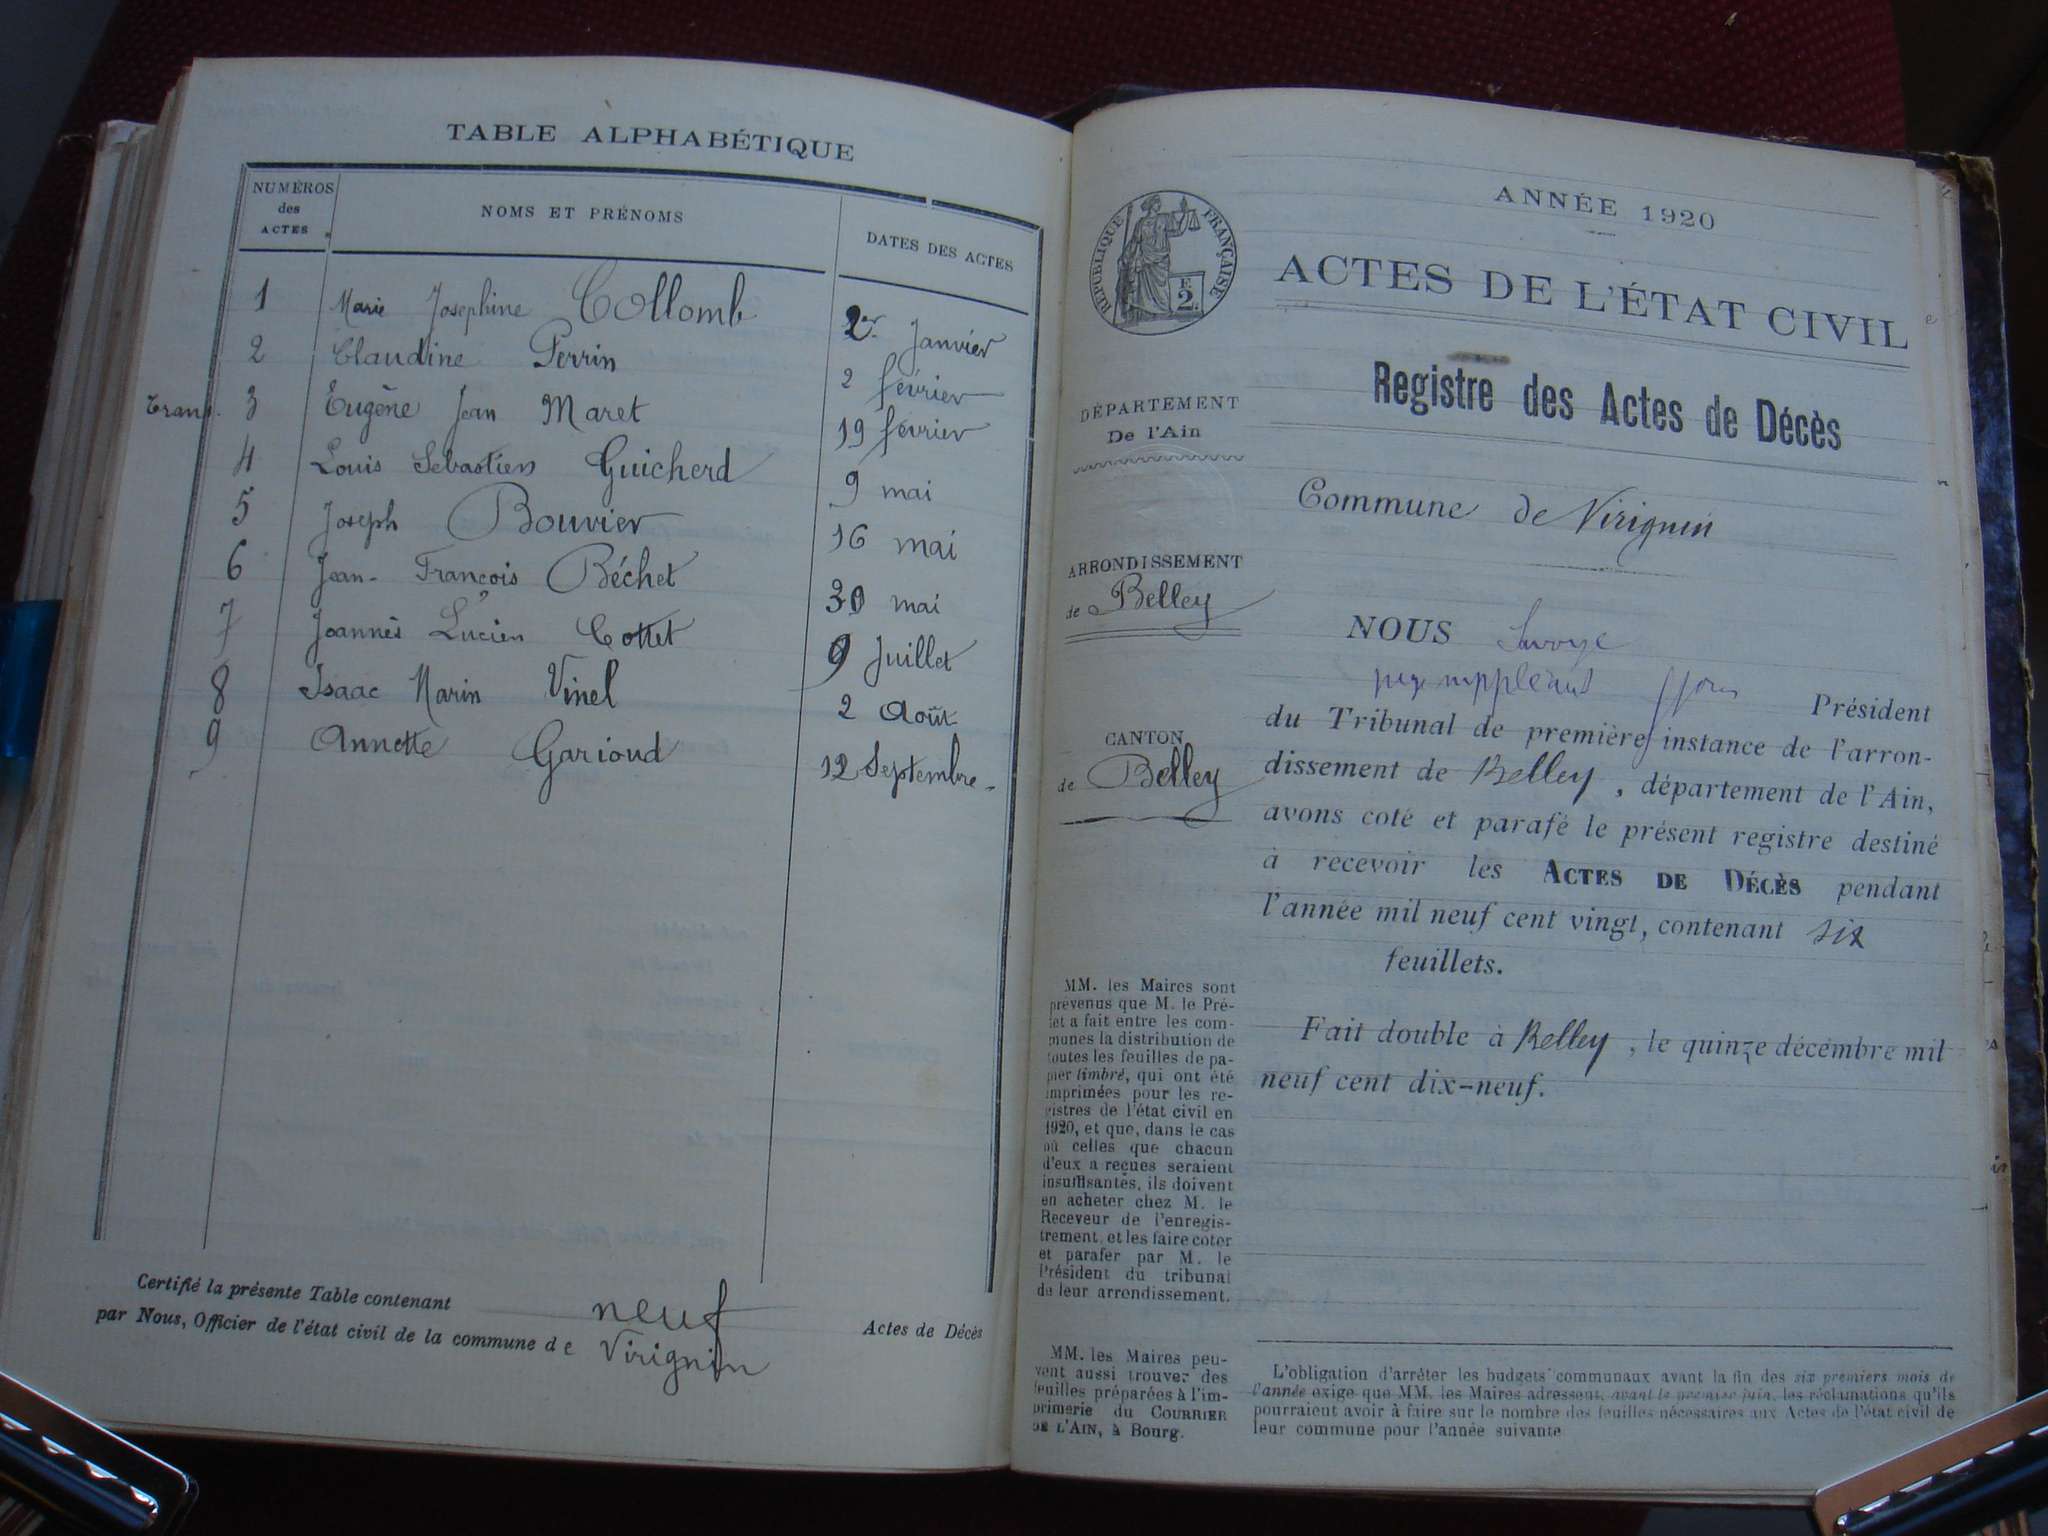 TABLE ALPHABÉTIQUE
NUMÉROS des ACTES NOMS ET PRÉNOMS DATES DES ACTES
1 Marie Josephine Collomb 2 Janvier
2 Claudine Perrin 2 février
Trans. 3 Eugène Jean Maret 19 février
4 Louis Sebastien Guicherd 9 mai
5 Joseph Bouvier 16 mai
6 Jean-François Béchet 30 mai
7 Joannès Lucien Cottet 9 Juillet
8 Isaac Marin Vinel 2 Août
9 Annette Garioud 12 Septembre.
Certifié la présente Table contenant neuf Actes de Décès
par Nous, Officier de l'état civil de la commune de Virignin
ANNÉE 1920
RÉPUBLIQUE FRANÇAISE
E
2
ACTES DE L'ÉTAT CIVIL
Registre des Actes de Décès
DÉPARTEMENT
De l'Ain
Commune de Virignin
ARRONDISSEMENT
de Belley
CANTON
de Belley
NOUS Savoye
juge suppléant Président
du Tribunal de première instance de l'arron-
dissement de Belley, département de l'Ain,
avons coté et parafé le présent registre destiné
à recevoir les ACTES DE DÉCÈS pendant
l'année mil neuf cent vingt, contenant six
feuillets.
Fait double à Belley, le quinze décembre mil
neuf cent dix-neuf.
MM. les Maires sont
prévenus que M. le Pré-
fet a fait entre les com-
munes la distribution de
toutes les feuilles de pa-
pier timbré, qui ont été
imprimées pour les re-
gistres de l'état civil en
1920, et que, dans le cas
où celles que chacun
d'eux a reçues seraient
insuffisantes, ils doivent
en acheter chez M. le
Receveur de l'enregis-
trement, et les faire coter
et parafer par M. le
Président du tribunal
de leur arrondissement.
MM. les Maires peu-
vent aussi trouver des
feuilles préparées à l'im-
primerie du COURRIER
DE L'AIN, à Bourg.
L'obligation d'arrêter les budgets communaux avant la fin des six premiers mois de
l'année exige que MM. les Maires adressent, avant le premier juin, les réclamations qu'ils
pourraient avoir à faire sur le nombre des feuilles nécessaires aux Actes de l'état civil de
leur commune pour l'année suivante